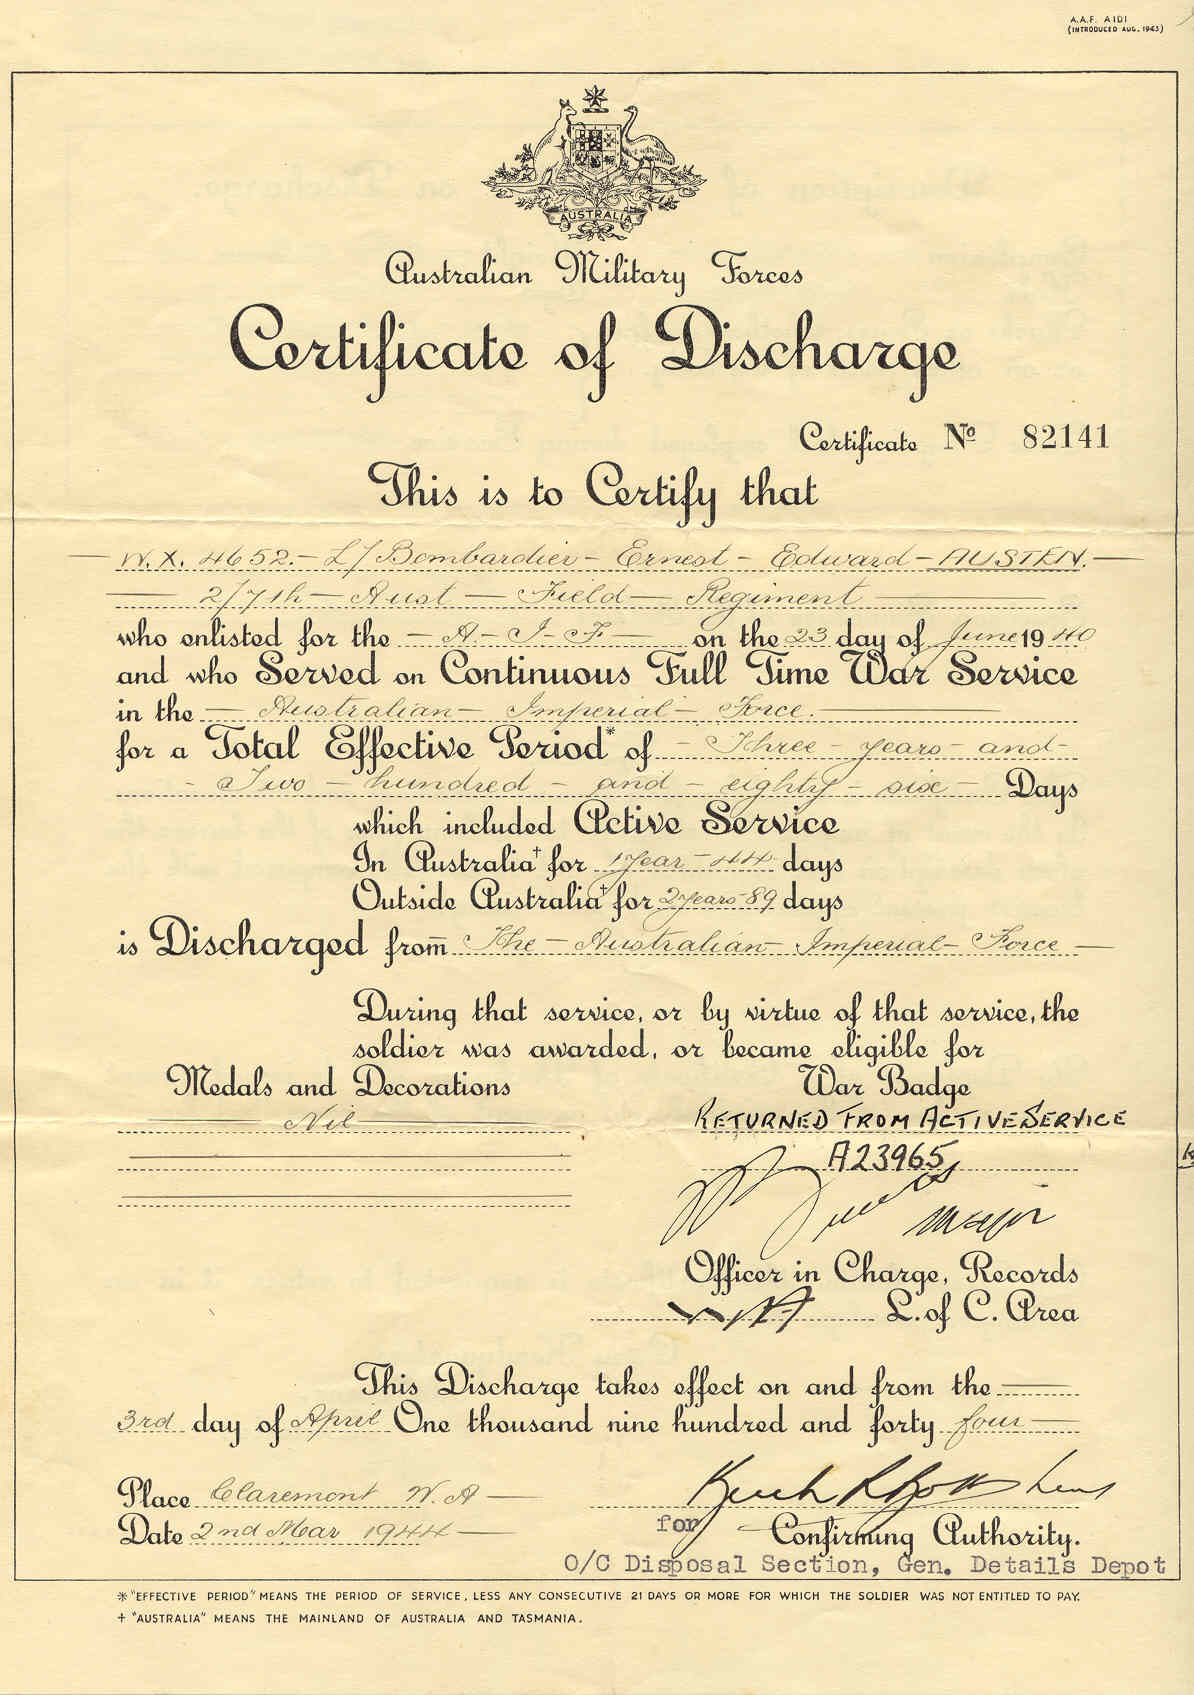 A.A.F. A101
(INTRODUCED AUG. 1943)
AUSTRALIA
Australian Military Forces
Certificate of Discharge
Certificate No 82141
This is to Certify that
W.X. 4652 - L/Bombardier - Ernest - Edward - AUSTEN.
2/7th - Aust - Field - Regiment
who enlisted for the - A. - I - F. - on the 23 day of June 1940
and who Served on Continuous Full Time War Service
in the - Australian - Imperial - Force.
for a Total Effective Period* of - Three - years - and -
- Two - hundred - and - eighty - six - Days
which included Active Service
In Australia† for 1 year - 44 days
Outside Australia† for 2 years - 89 days
is Discharged from The - Australian - Imperial - Force -
During that service, or by virtue of that service, the
soldier was awarded, or became eligible for
Medals and Decorations War Badge
Nil RETURNED FROM ACTIVE SERVICE
A23965
Major
Officer in Charge, Records
L. of C. Area
This Discharge takes effect on and from the
3rd day of April One thousand nine hundred and forty four
Place Claremont W.A -
Date 2nd Mar 1944 -
for Confirming Authority.
O/C Disposal Section, Gen. Details Depot
* "EFFECTIVE PERIOD" MEANS THE PERIOD OF SERVICE, LESS ANY CONSECUTIVE 21 DAYS OR MORE FOR WHICH THE SOLDIER WAS NOT ENTITLED TO PAY.
† "AUSTRALIA" MEANS THE MAINLAND OF AUSTRALIA AND TASMANIA.